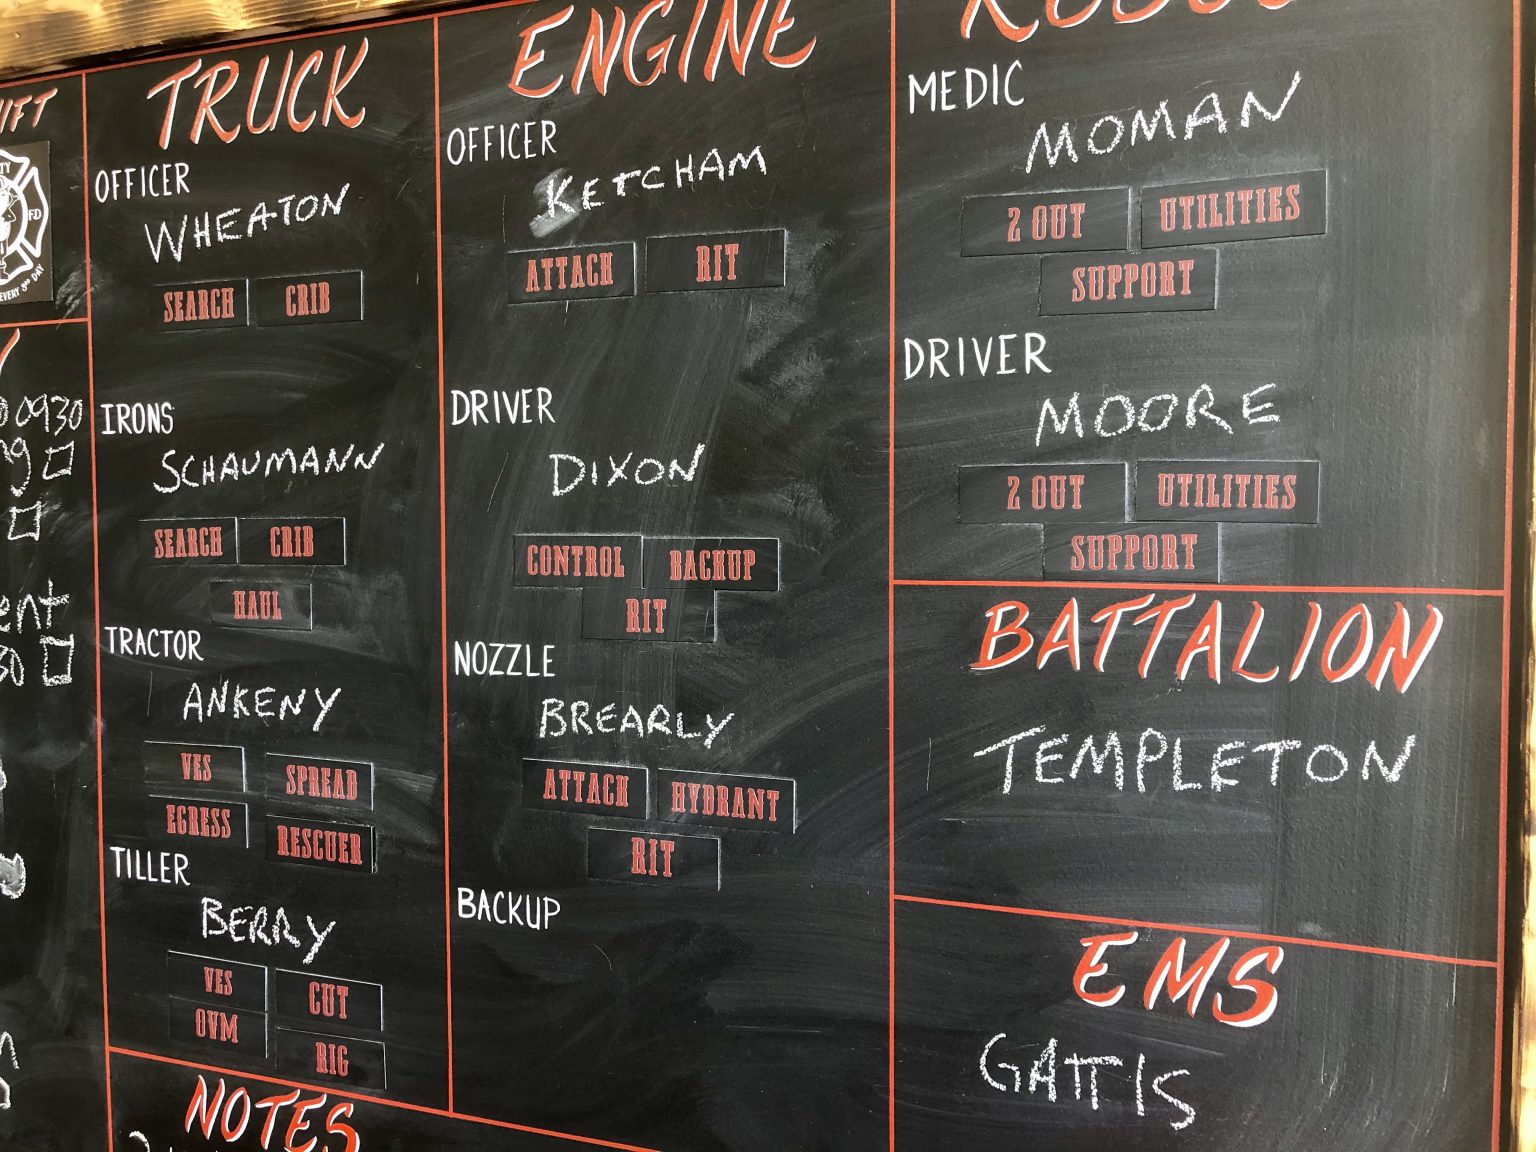 TRUCK
OFFICER
WHEATON
SEARCH CRIB
IRONS
SCHAUMANN
SEARCH CRIB
HAUL
TRACTOR
ANKENY
VES SPREAD
EGRESS RESCUER
TILLER
BERRY
VES CUT
OVM RIG
NOTES
ENGINE
OFFICER
KETCHAM
ATTACH RIT
DRIVER
DIXON
CONTROL BACKUP
RIT
NOZZLE
BREARLY
ATTACH HYDRANT
RIT
BACKUP
MEDIC
MOMAN
2 OUT UTILITIES
SUPPORT
DRIVER
MOORE
2 OUT UTILITIES
SUPPORT
BATTALION
TEMPLETON
EMS
GATTIS
0930
EVERY 3RD DAY
FD